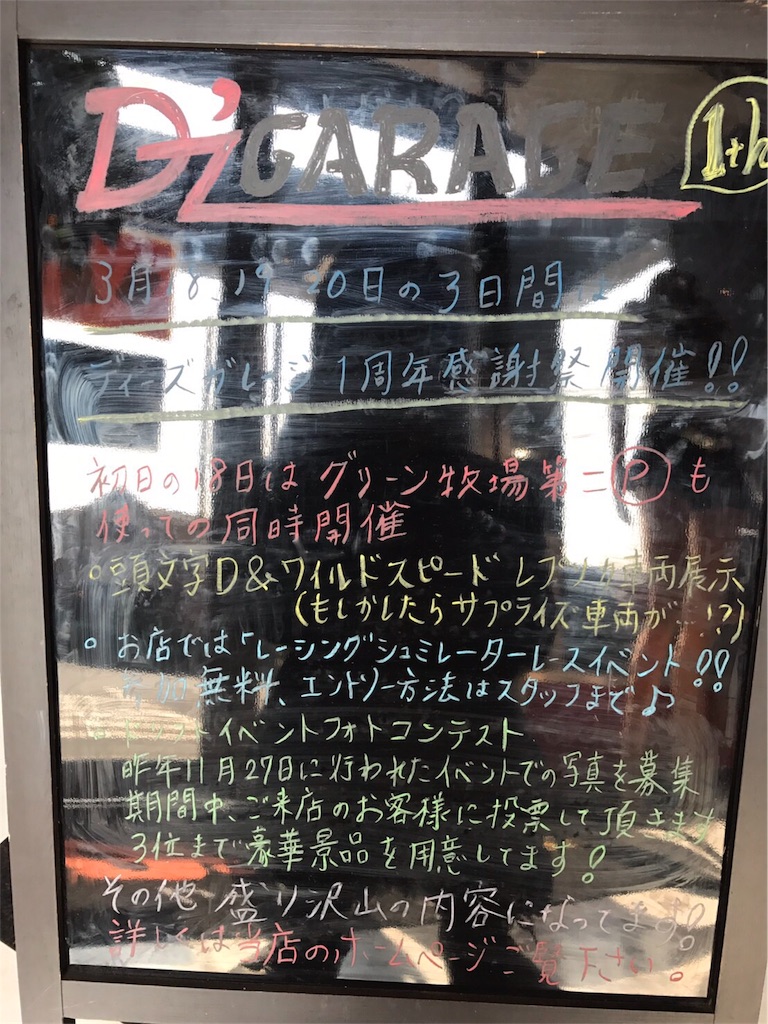 D'z GARAGE 1th
3月18、19 20日の3日間は
ディーズガレージ 1周年感謝祭開催!!
初日の18日は グリーン牧場第二Ⓟも
使っての同時開催
。頭文字D&ワイルドスピード レプリカ車両展示
(もしかしたらサプライズ車両が…!?)
。お店では「レーシングシュミレーターレースイベント!!
参加無料、エントリー方法はスタッフまで♪
。ドリフトイベントフォトコンテスト
昨年11月27日に行われたイベントでの写真を募集
期間中、ご来店のお客様に投票して頂きます
3位まで豪華景品を用意してます!
その他 盛り沢山の内容になってます!
詳しくは当店のホームページご覧下さい。